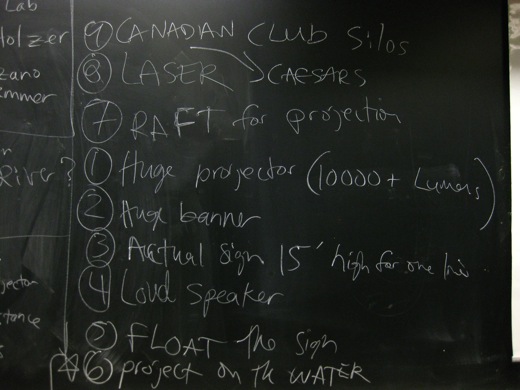 Lab
Holzer
zano
mmer
River?
jector
stance
9 CANADIAN CLUB Silos
8 LASER → CAESARS
7 RAFT for projection
1 Huge projector (10000+ Lumens)
2 Huge banner
3 Actual sign 15' high for one line
4 Loud speaker
5 FLOAT the sign
6 project on the WATER